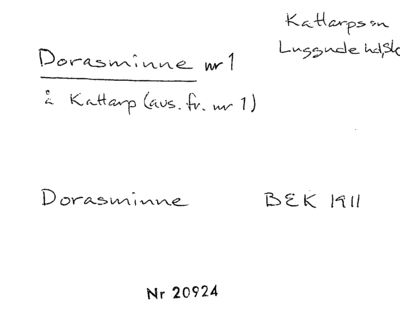 Kattarps sn
Luggude hd, Sk
Dorasminne nr 1
å Kattarp (avs. fr. nr 1)
Dorasminne BEK 1911
Nr 20924